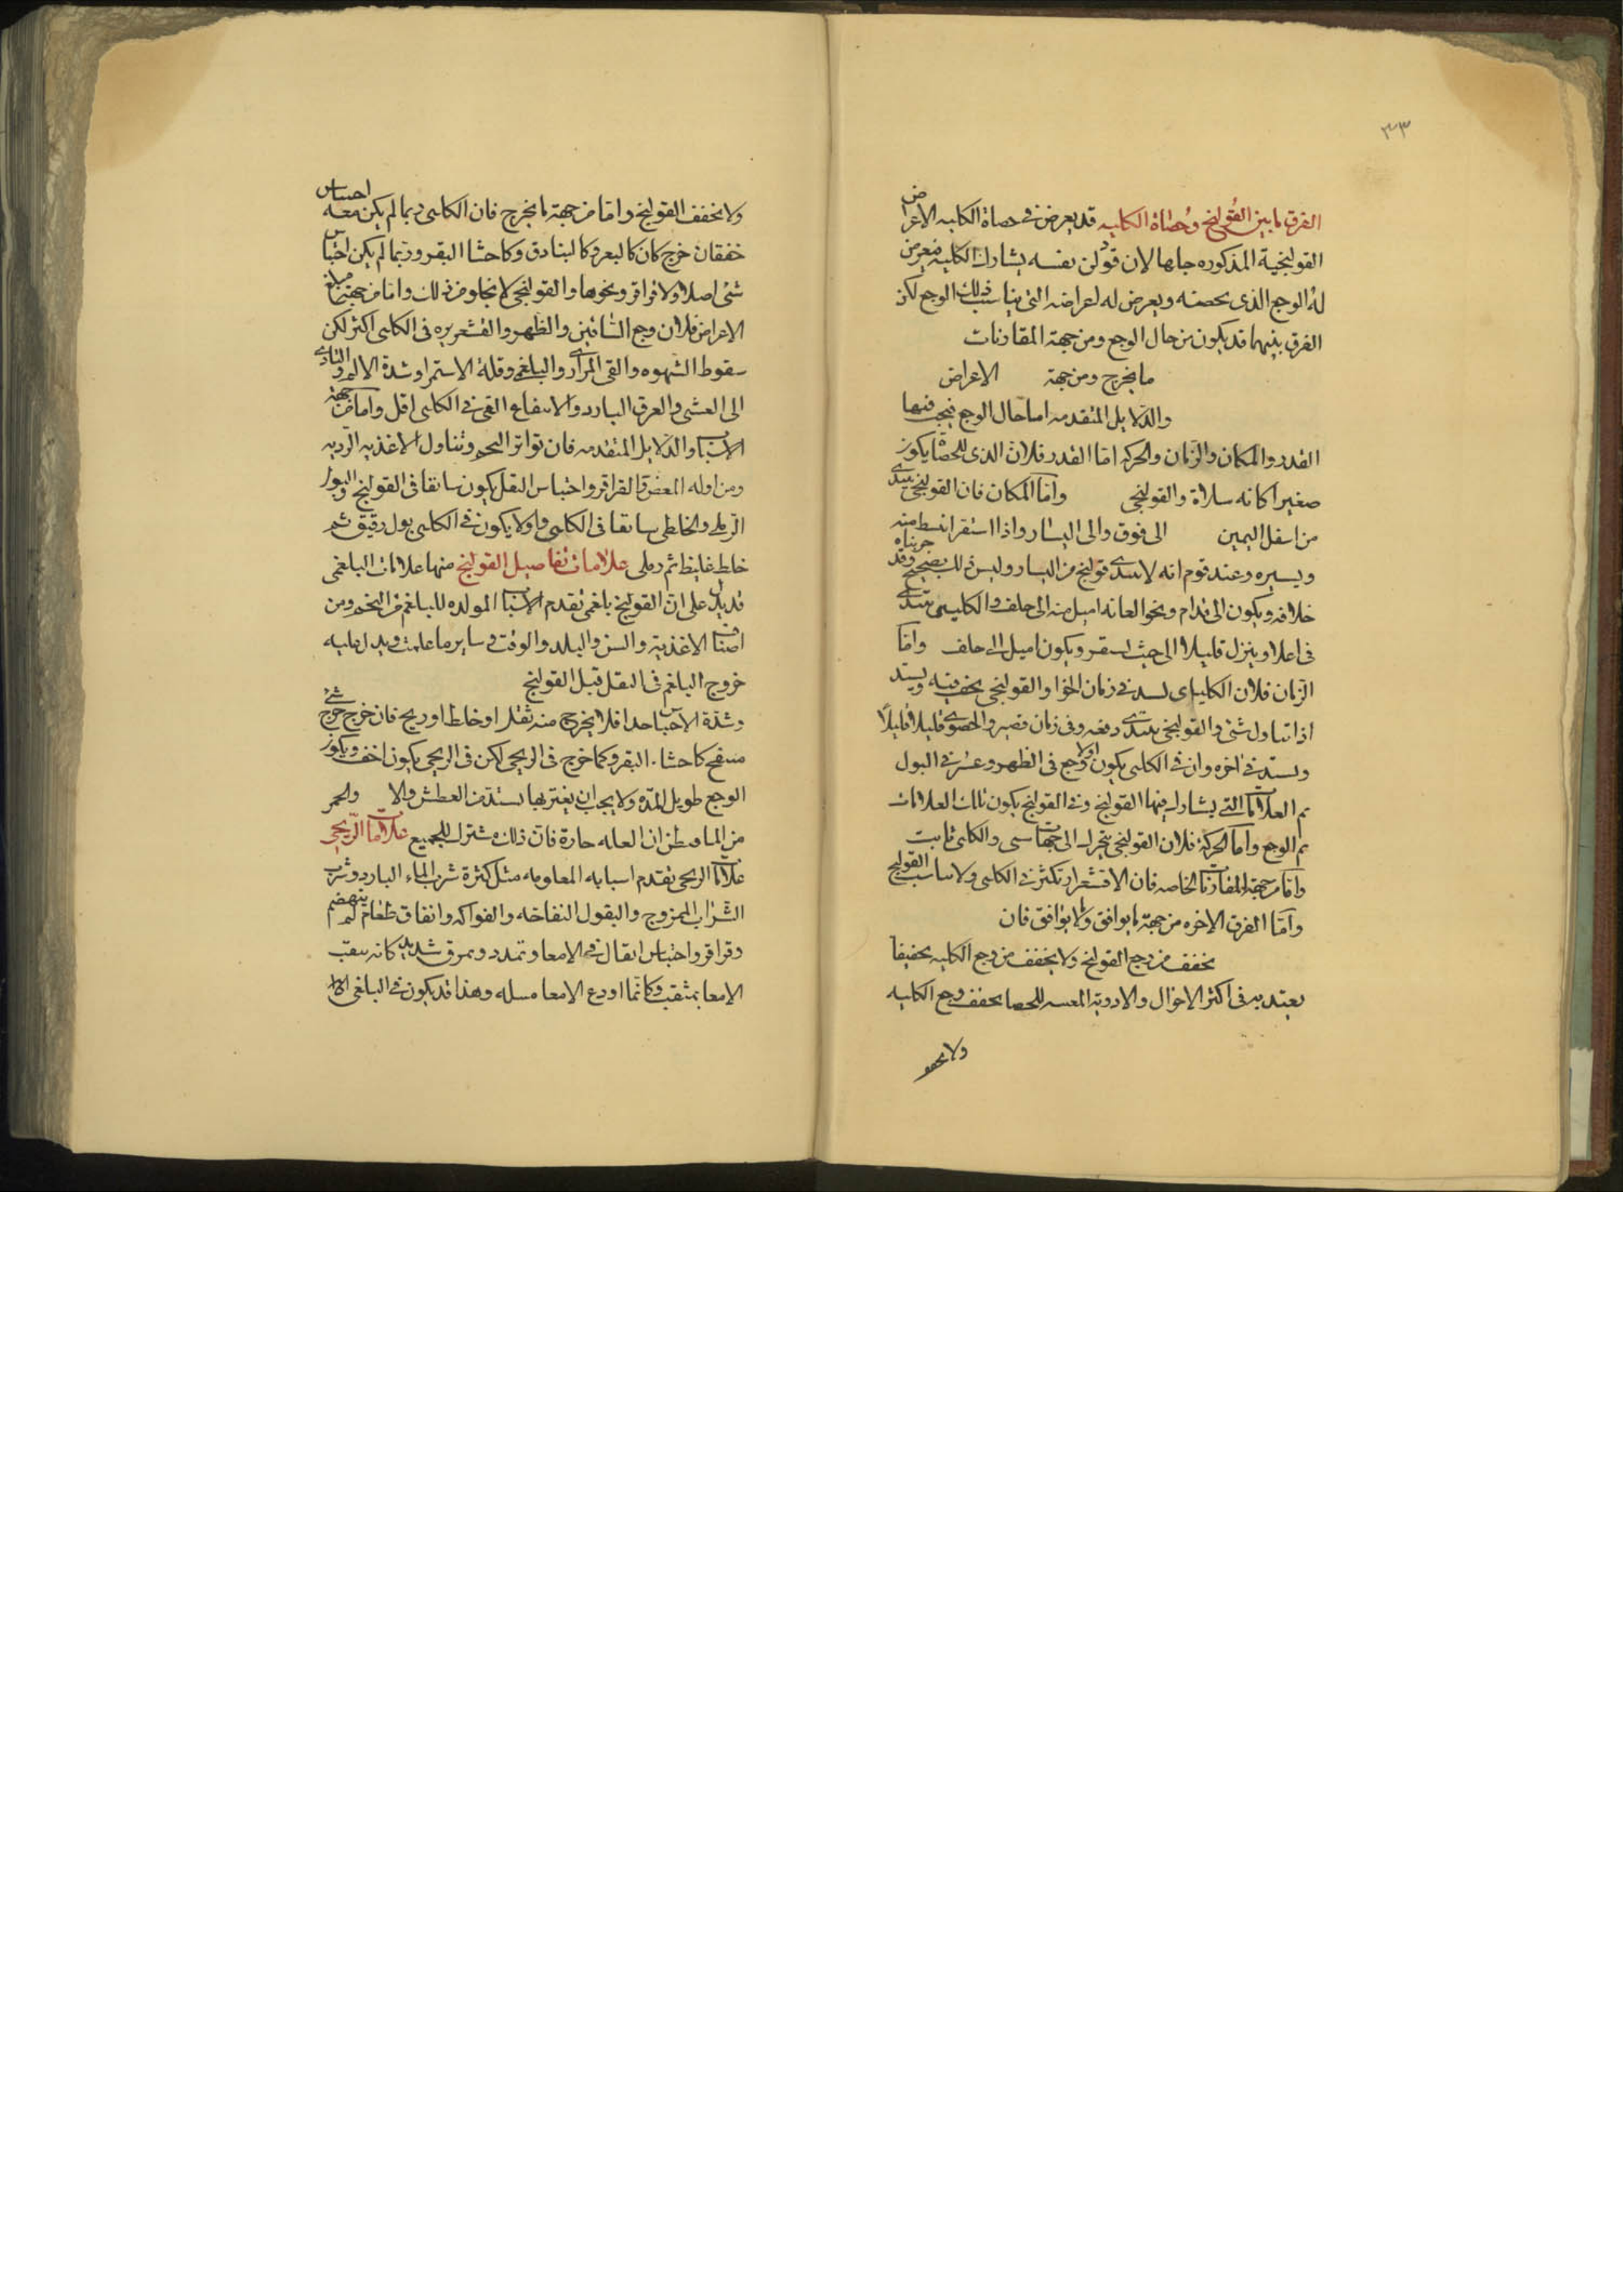 ٣٣
الفرق ما بين القولنج وحصاة الكليه قد يعرض في حصاة الكليه الاعراض
القولنجية المذكوره جلها لان قولن نفسه يشارك الكليه فيعرض
له الوجع الذى يحصه ويعرض له اعراضه التى يناسب ذلك الوجع لكن
الفرق بينهما قد يكون من حال الوجع ومن جهة المقارنات
ما يخرج ومن جهة الاعراض
والدلايل المتقدمه اما حال الوجع فيها
القدر والمكان والزمان والحركه اما القدر فلان الذى للحصاة يكون
صغيرا كانه سلاة والقولنجى واما المكان فان القولنجى يبتدى
من اسفل اليمين الى فوق والى اليسار واذا استقر انبسط يمنه
ويسيره وعند قوم انه لا يبتدى قولنج من اليسار وليس ذلك بصحيح وقد جربناه
خلافه ويكون الى قدام ونحو العانه اميل منه الى خلف والكليى يبتدى
فى اعلا وينزل قليلا الى حيث استقر ويكون اميل الى خلف واما
الزمان فلان الكليى يشتد فى زمان الخوا والقولنجى يخف فيه ويشتد
اذا تناول شئ والقولنجى يبتدى دفعه وفى زمان قصير والحصوى قليلا قليلا
ويشتد فى اخره وان فى الكلى يكون اولا وجع فى الظهر وعسر فى البول
ثم العلامات التى يشارك فيها القولنج وفى القولنج يكون تلك العلامات
ثم الوجع واما الحركة فلان القولنجى يتحرك الى جهات شتى والكلى ثابت
واما من جهة المقارنات الخاصه فان الاقشعرار يكثر فى الكلى ولا يناسب القولنج
واما الفرق الاخره من جهة ما يوافق ولا يوافق فان
يخفف من وجع القولنج ولا يخفف من وجع الكليه تخفيفا
يعتد به فى اكثر الاحوال والادوية المفتته للحصا يخفف وجع الكليه
ولا يخفف
ولا يخفف القولنج واما من جهة ما يخرج فان الكلى ربما لم يكن معه احتباس
خفقان خرج كان كالبعر وكالبنادق وكاحشا البقر وربما لم يكن احتباس
شئ اصلا ولا قراقر ونحوها والقولنجى لا يخلو من ذلك واما من جهة مبلغ
الاعراض فلان وجع الساقين والظهر والقشعريره فى الكلى اكثر لكن
سقوط الشهوه والقى المرارى والبلغمى وقلة الاستمرا وشدة الالم والتادى
الى الغشى والعرق البارد والانتفاع القى فى الكلى اقل واما من جهة
الاسباب والدلايل المتقدمه فان تواتر التخم وتناول الاغذيه الرديه
ومزاوله المغص والقراقر واحتباس الثقل يكون سابقا فى القولنج والبول
الرملى والخلطى سابقا فى الكلى واولا يكون فى الكلى بول رقيق ثم
خلط غليظ ثم رملى علامات تفاصيل القولنج منها علامات البلغمى
قد يدل على ان القولنج بلغمى تقدم الاسباب المولده للبلغم من التخم ومن
اصناف الاغذية والسن والبلد والوقت وساير ما علمت ويدل عليه
خروج البلغم فى الثقل قبل القولنج
وشدة الاحتباس جدا فلا يخرج منه ثقل او خلط او ريح فان خرج شئ خرج
منتفخ كاحشاء البقر وكما خرج فى الريحى لكن فى الريحى يكون اخف ويكون
الوجع طويل المده ولا يجب ان يغتر بما يشتد من العطش والا والحمر
من الما فيظن ان العله حارة فان ذلك مشترك للجميع علامات الريحى
علامات الريحى تقدم اسبابه المعلومه مثل كثرة شرب الماء البارد وشرب
الشراب الممزوج والبقول النفاخه والفواكه واتفاق طعام لم ينهضم
وقراقر واحتباس اثقال فى الامعا وتمدد وتمزق شديد كانه ينقب
الامعا بمثقب وكانما اودع الامعا مسله وهذا قد يكون فى البلغمى الا